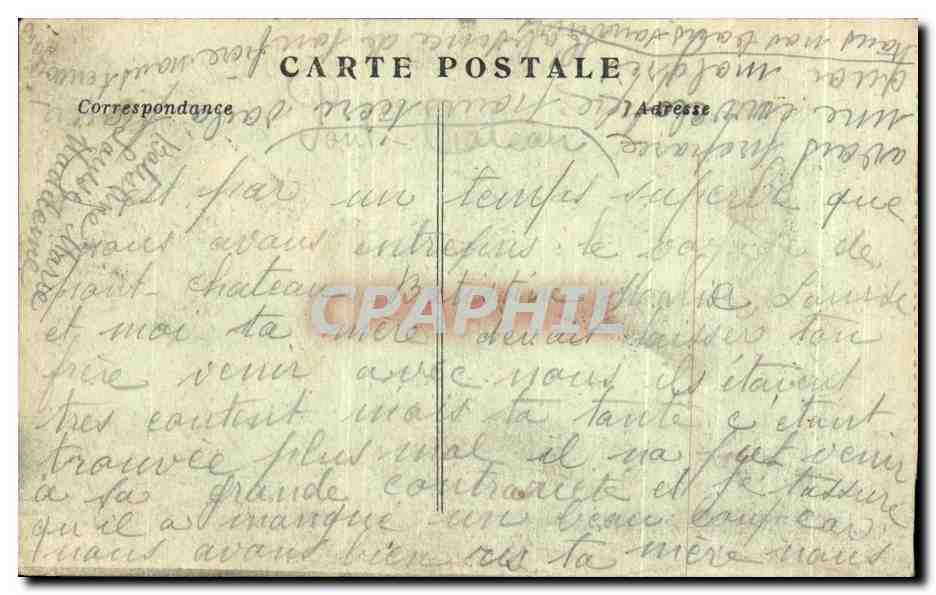 CARTE POSTALE
Correspondance
Adresse
C'est par un temps superbe que
nous avons entrepris le voyage de
pont-chateau Batistine Marie Louise
et moi ta mère devait laisser ton
frère venir avec nous ils étaient
tres content mais ta tante c étant
trouvée plus mal il na put venir
a sa grande contrariete et je tassure
qu'il a manqué un beau coup car
nous avons bien ris ta mère nous
avait préparé
une
quoi malgré
tous nos
Batistine Marie
Louise
Madeleine
CPAPHIL